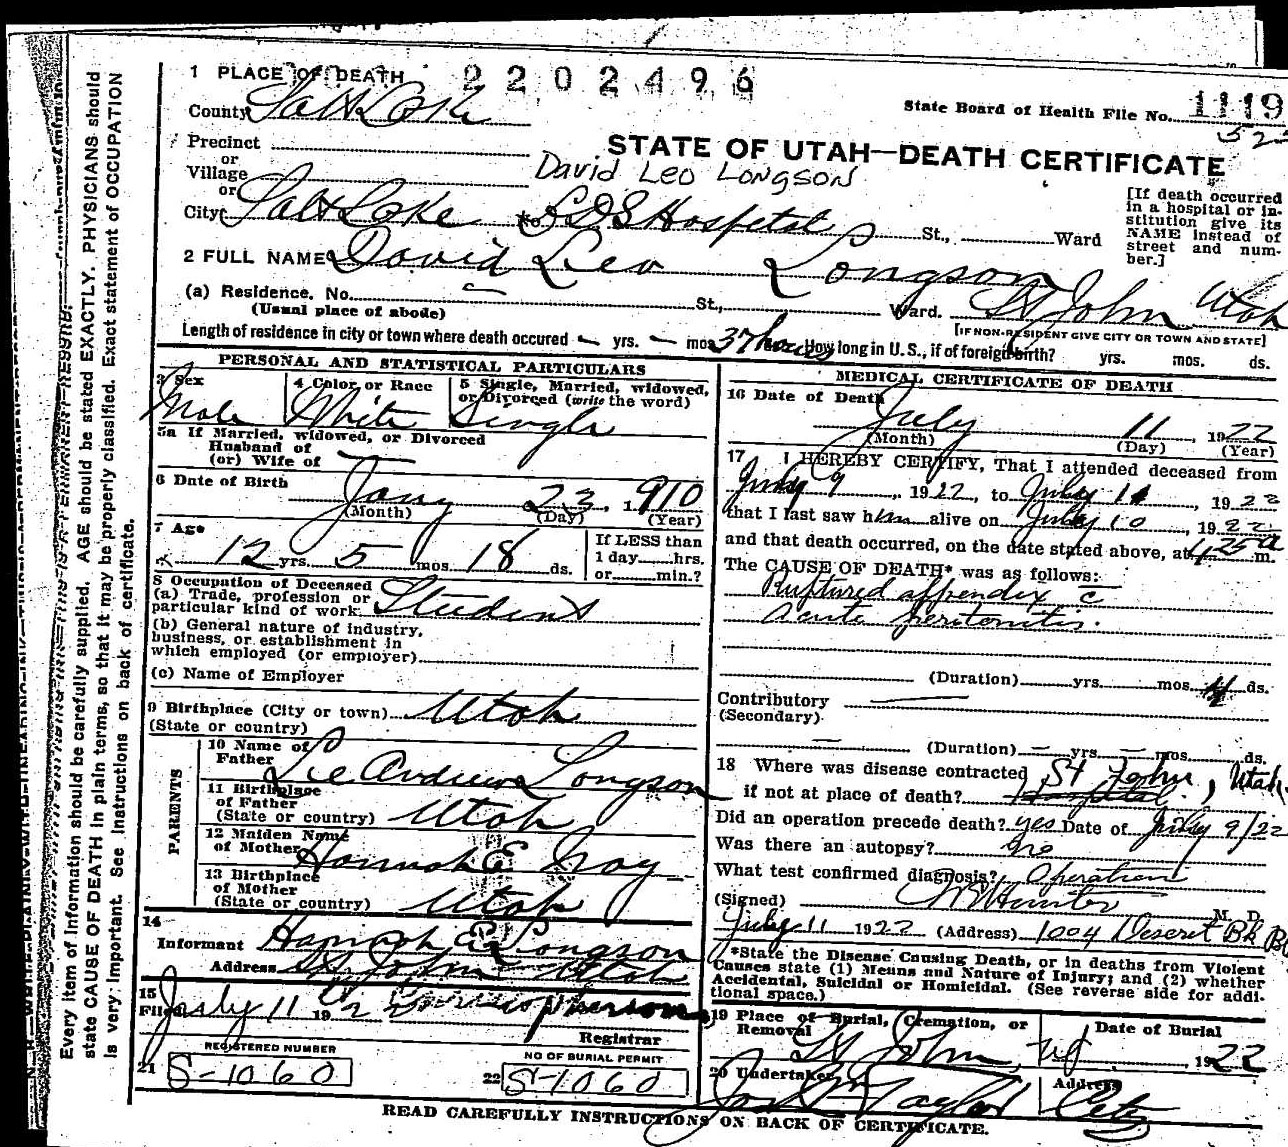 1 PLACE OF DEATH 2202496
County Salt Lake
State Board of Health File No. 1119
Precinct
or
Village
or
City Salt Lake
STATE OF UTAH—DEATH CERTIFICATE
David Leo Longson
L D S Hospital St., Ward
[If death occurred in a hospital or institution give its NAME instead of street and number.]
2 FULL NAME David Leo Longson
(a) Residence. No. St., Ward. St John Utah
(Usual place of abode)
[IF NON-RESIDENT GIVE CITY OR TOWN AND STATE]
Length of residence in city or town where death occured — yrs. — mos. 37 hours How long in U.S., if of foreign birth? yrs. mos. ds.
PERSONAL AND STATISTICAL PARTICULARS
3 Sex
Male
4 Color or Race
White
5 Single, Married, widowed, or Divorced (write the word)
Single
5a If Married, widowed, or Divorced
Husband of
(or) Wife of
6 Date of Birth Jany 23, 1910
(Month) (Day) (Year)
7 Age
12 yrs. 5 mos. 18 ds.
If LESS than
1 day hrs.
or min.?
8 Occupation of Deceased
(a) Trade, profession or
particular kind of work. Student
(b) General nature of industry,
business, or establishment in
which employed (or employer)
(c) Name of Employer
9 Birthplace (City or town) Utah
(State or country)
PARENTS
10 Name of
Father Lee Andrew Longson
11 Birthplace
of Father
(State or country) Utah
12 Maiden Name
of Mother Hannah E
13 Birthplace
of Mother
(State or country) Utah
14
Informant Hannah E Longson
Address St John Utah
15
Filed July 11 1922
Registrar
REGISTERED NUMBER
21 S-1060
NO OF BURIAL PERMIT
22 S-1060
MEDICAL CERTIFICATE OF DEATH
16 Date of Death
July 11, 1922
(Month) (Day) (Year)
17 I HEREBY CERTIFY, That I attended deceased from
July 9, 1922, to July 11, 1922
that I last saw him alive on July 10, 1922
and that death occurred, on the date stated above, at 4.25 a m.
The CAUSE OF DEATH* was as follows:
Ruptured appendix c̄
Acute peritonitis.
(Duration) yrs. mos. 4 ds.
Contributory
(Secondary)
(Duration) — yrs. — mos. ds.
18 Where was disease contracted St John, Utah
if not at place of death? Hospital.
Did an operation precede death? yes Date of July 9/22
Was there an autopsy? no
What test confirmed diagnosis? Operation
(Signed) Hunter M. D.
July 11 1922 (Address) 1004 Deseret Bk
*State the Disease Causing Death, or in deaths from Violent
Causes state (1) Means and Nature of Injury; and (2) whether
Accidental, Suicidal or Homicidal. (See reverse side for addi-
tional space.)
19 Place of Burial, Cremation, or
Removal St John,
Date of Burial
1922
20 Undertaker Taylor
Address
City
READ CAREFULLY INSTRUCTIONS ON BACK OF CERTIFICATE.
Every item of Information should be carefully supplied. AGE should be stated EXACTLY. PHYSICIANS should
state CAUSE OF DEATH in plain terms, so that it may be properly classified. Exact statement of OCCUPATION
is very important. See Instructions on back of certificate.